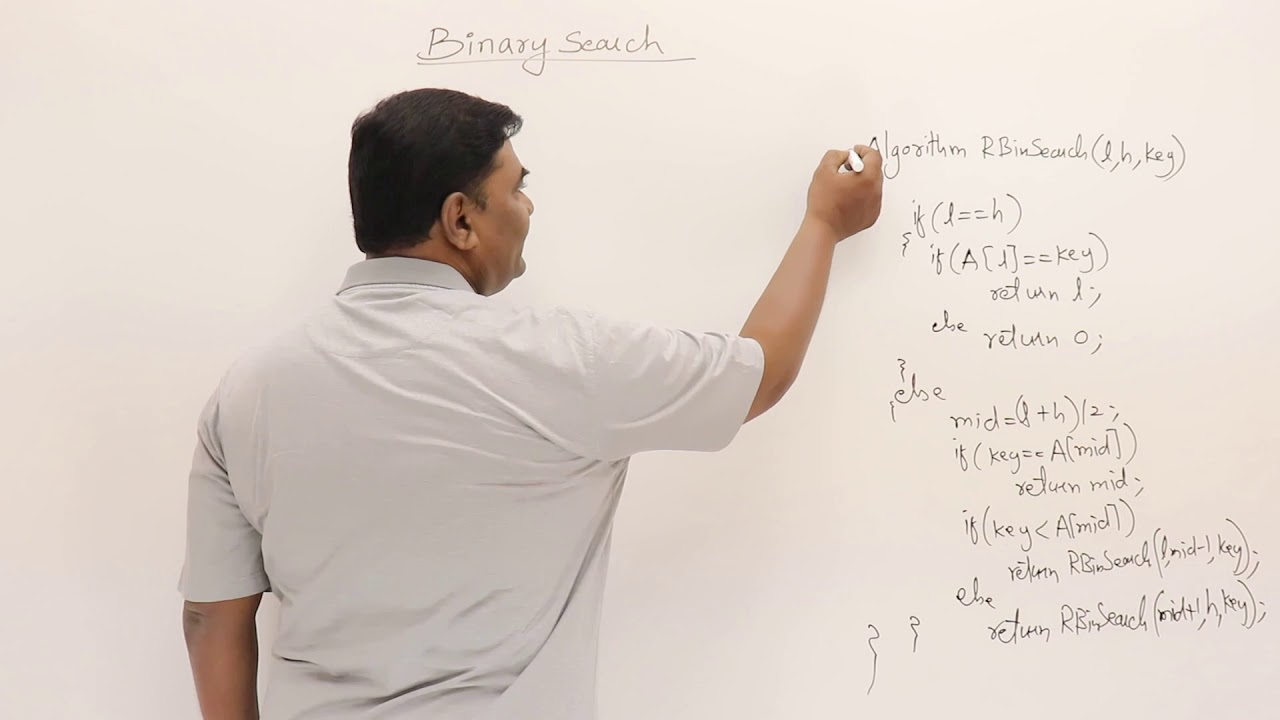 Binary Search
Algorithm RBinSearch(l,h,key)
if(l==h)
{
if(A[l]==key)
return l;
else return 0;
}
else
{
mid=(l+h)/2;
if(key==A[mid])
return mid;
if(key<A[mid])
return RBinSearch(l,mid-1,key);
else
return RBinSearch(mid+1,h,key);
}
}